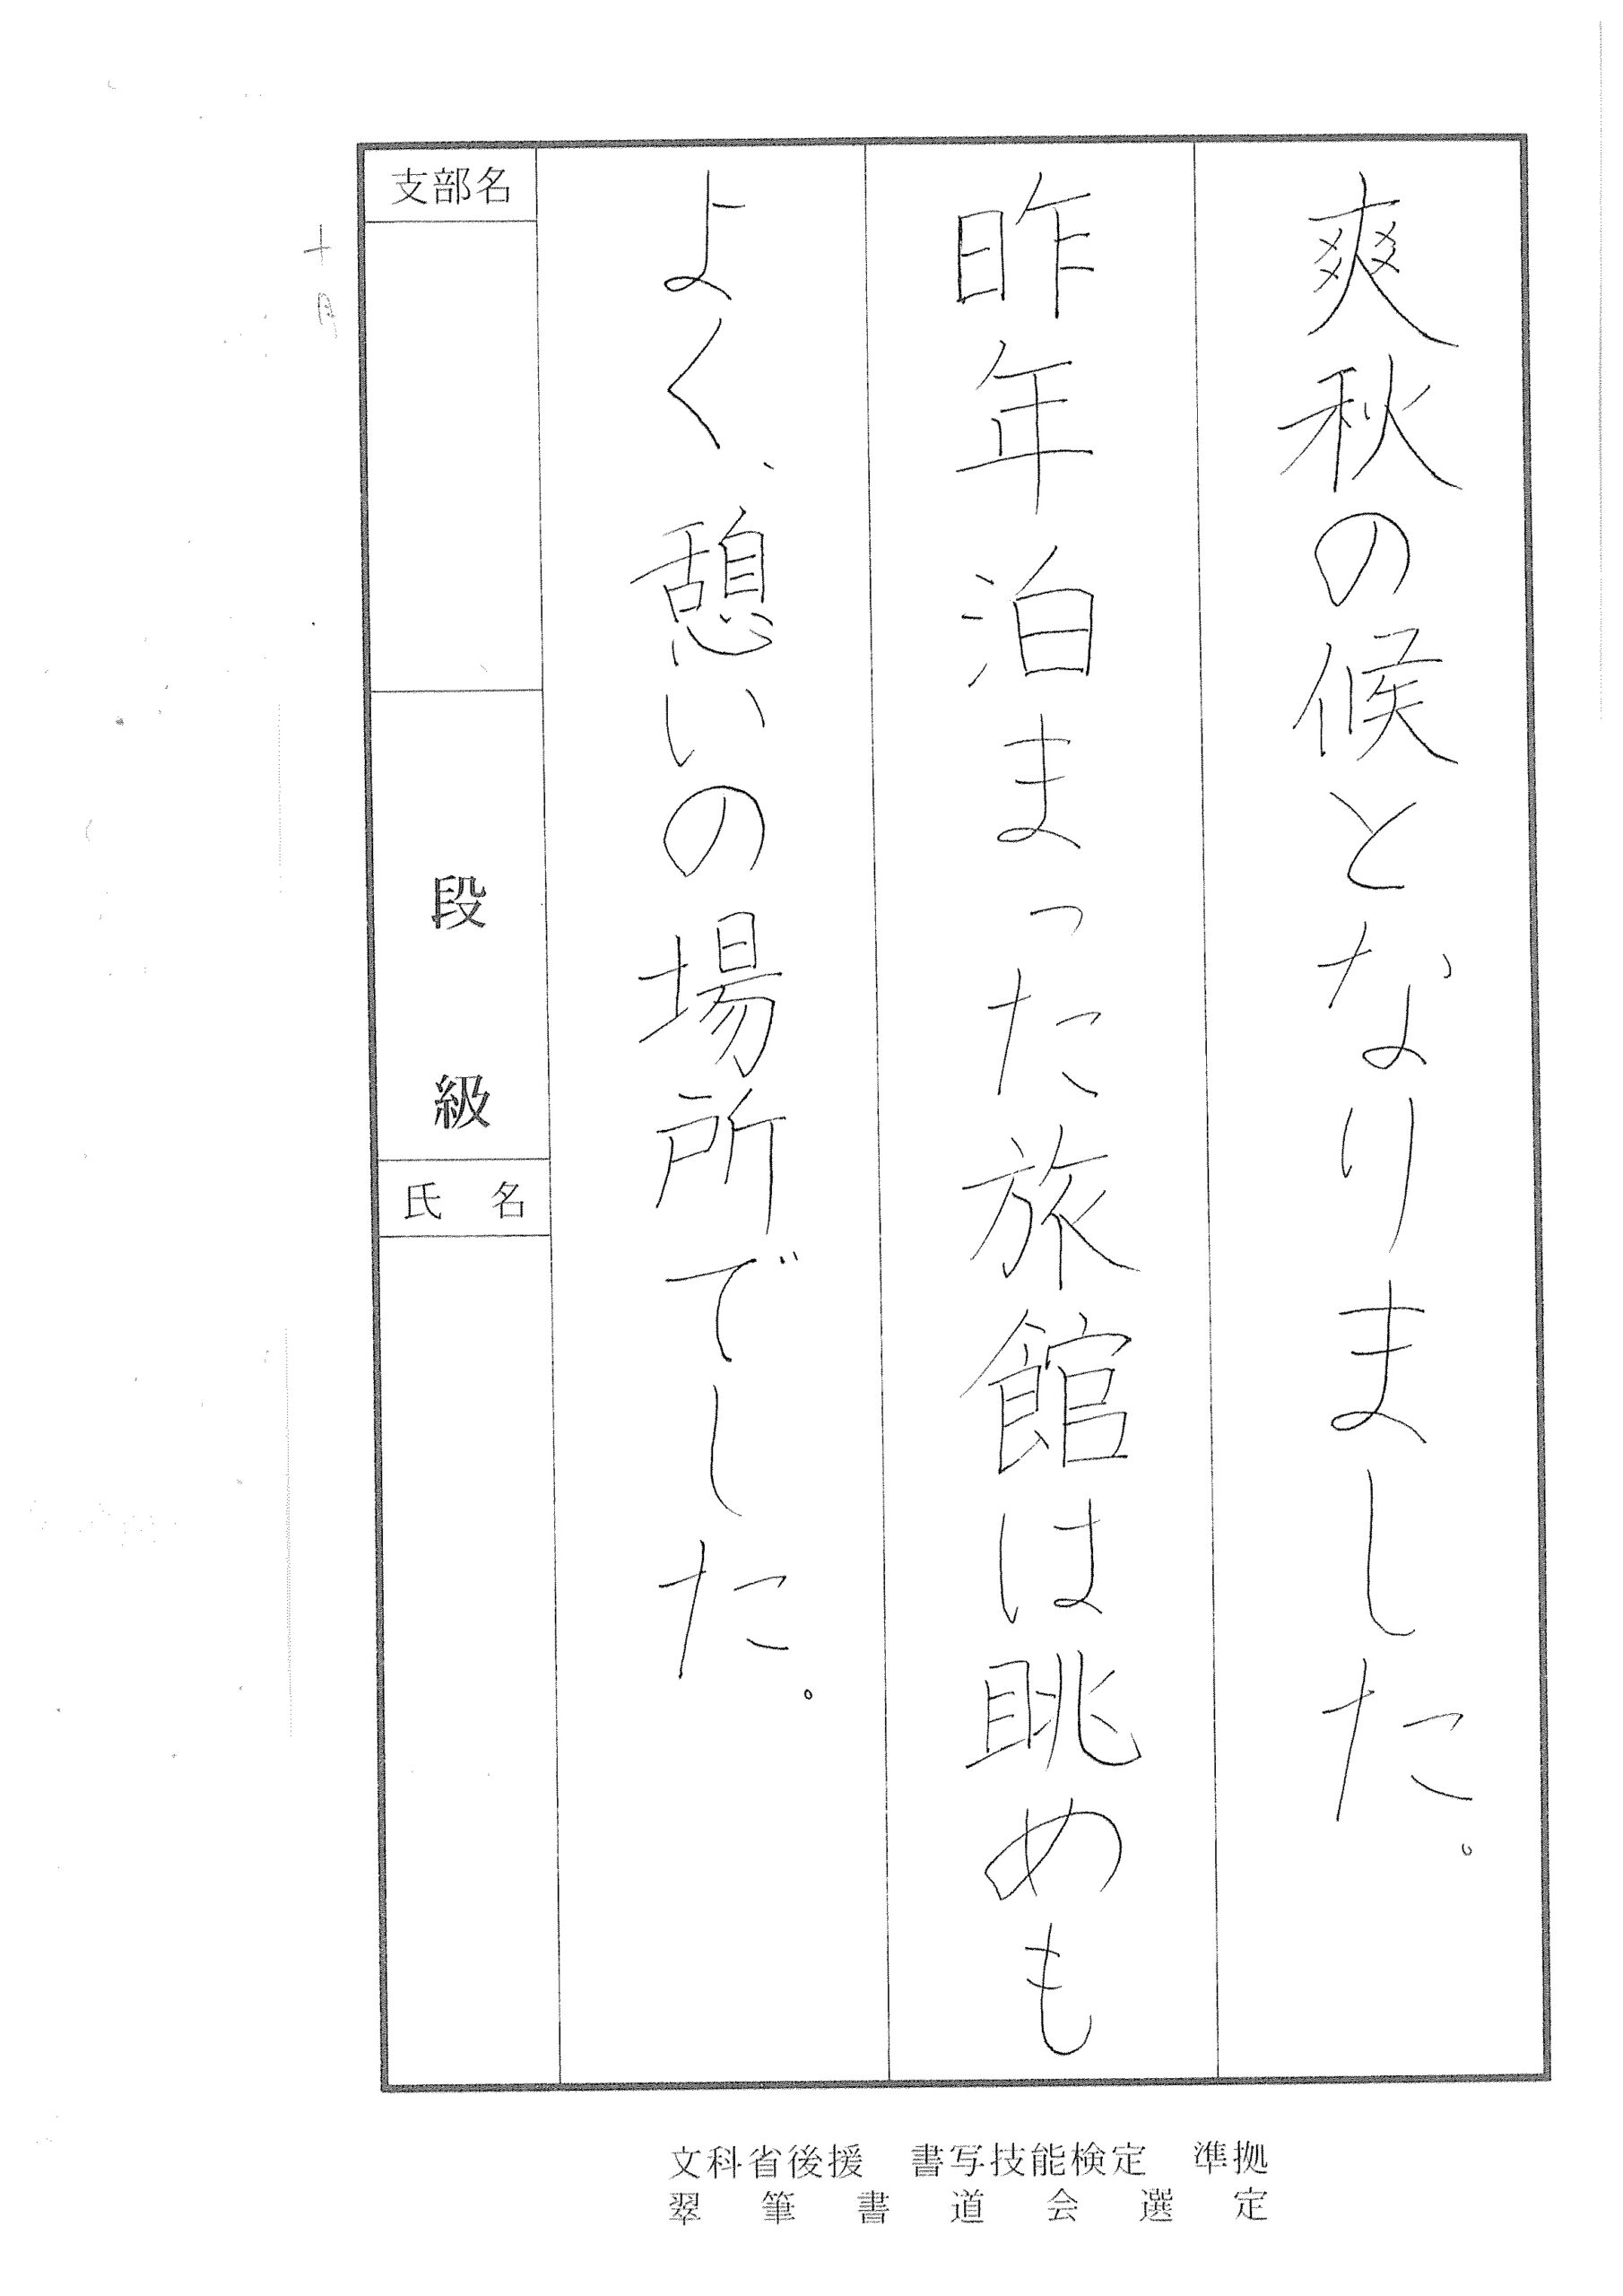 爽秋の候となりました。
昨年泊まった旅館は眺めも
よく、憩いの場所でした。
支部名
段
級
氏 名
十月
文科省後援 書写技能検定 準拠
翠筆書道会選定